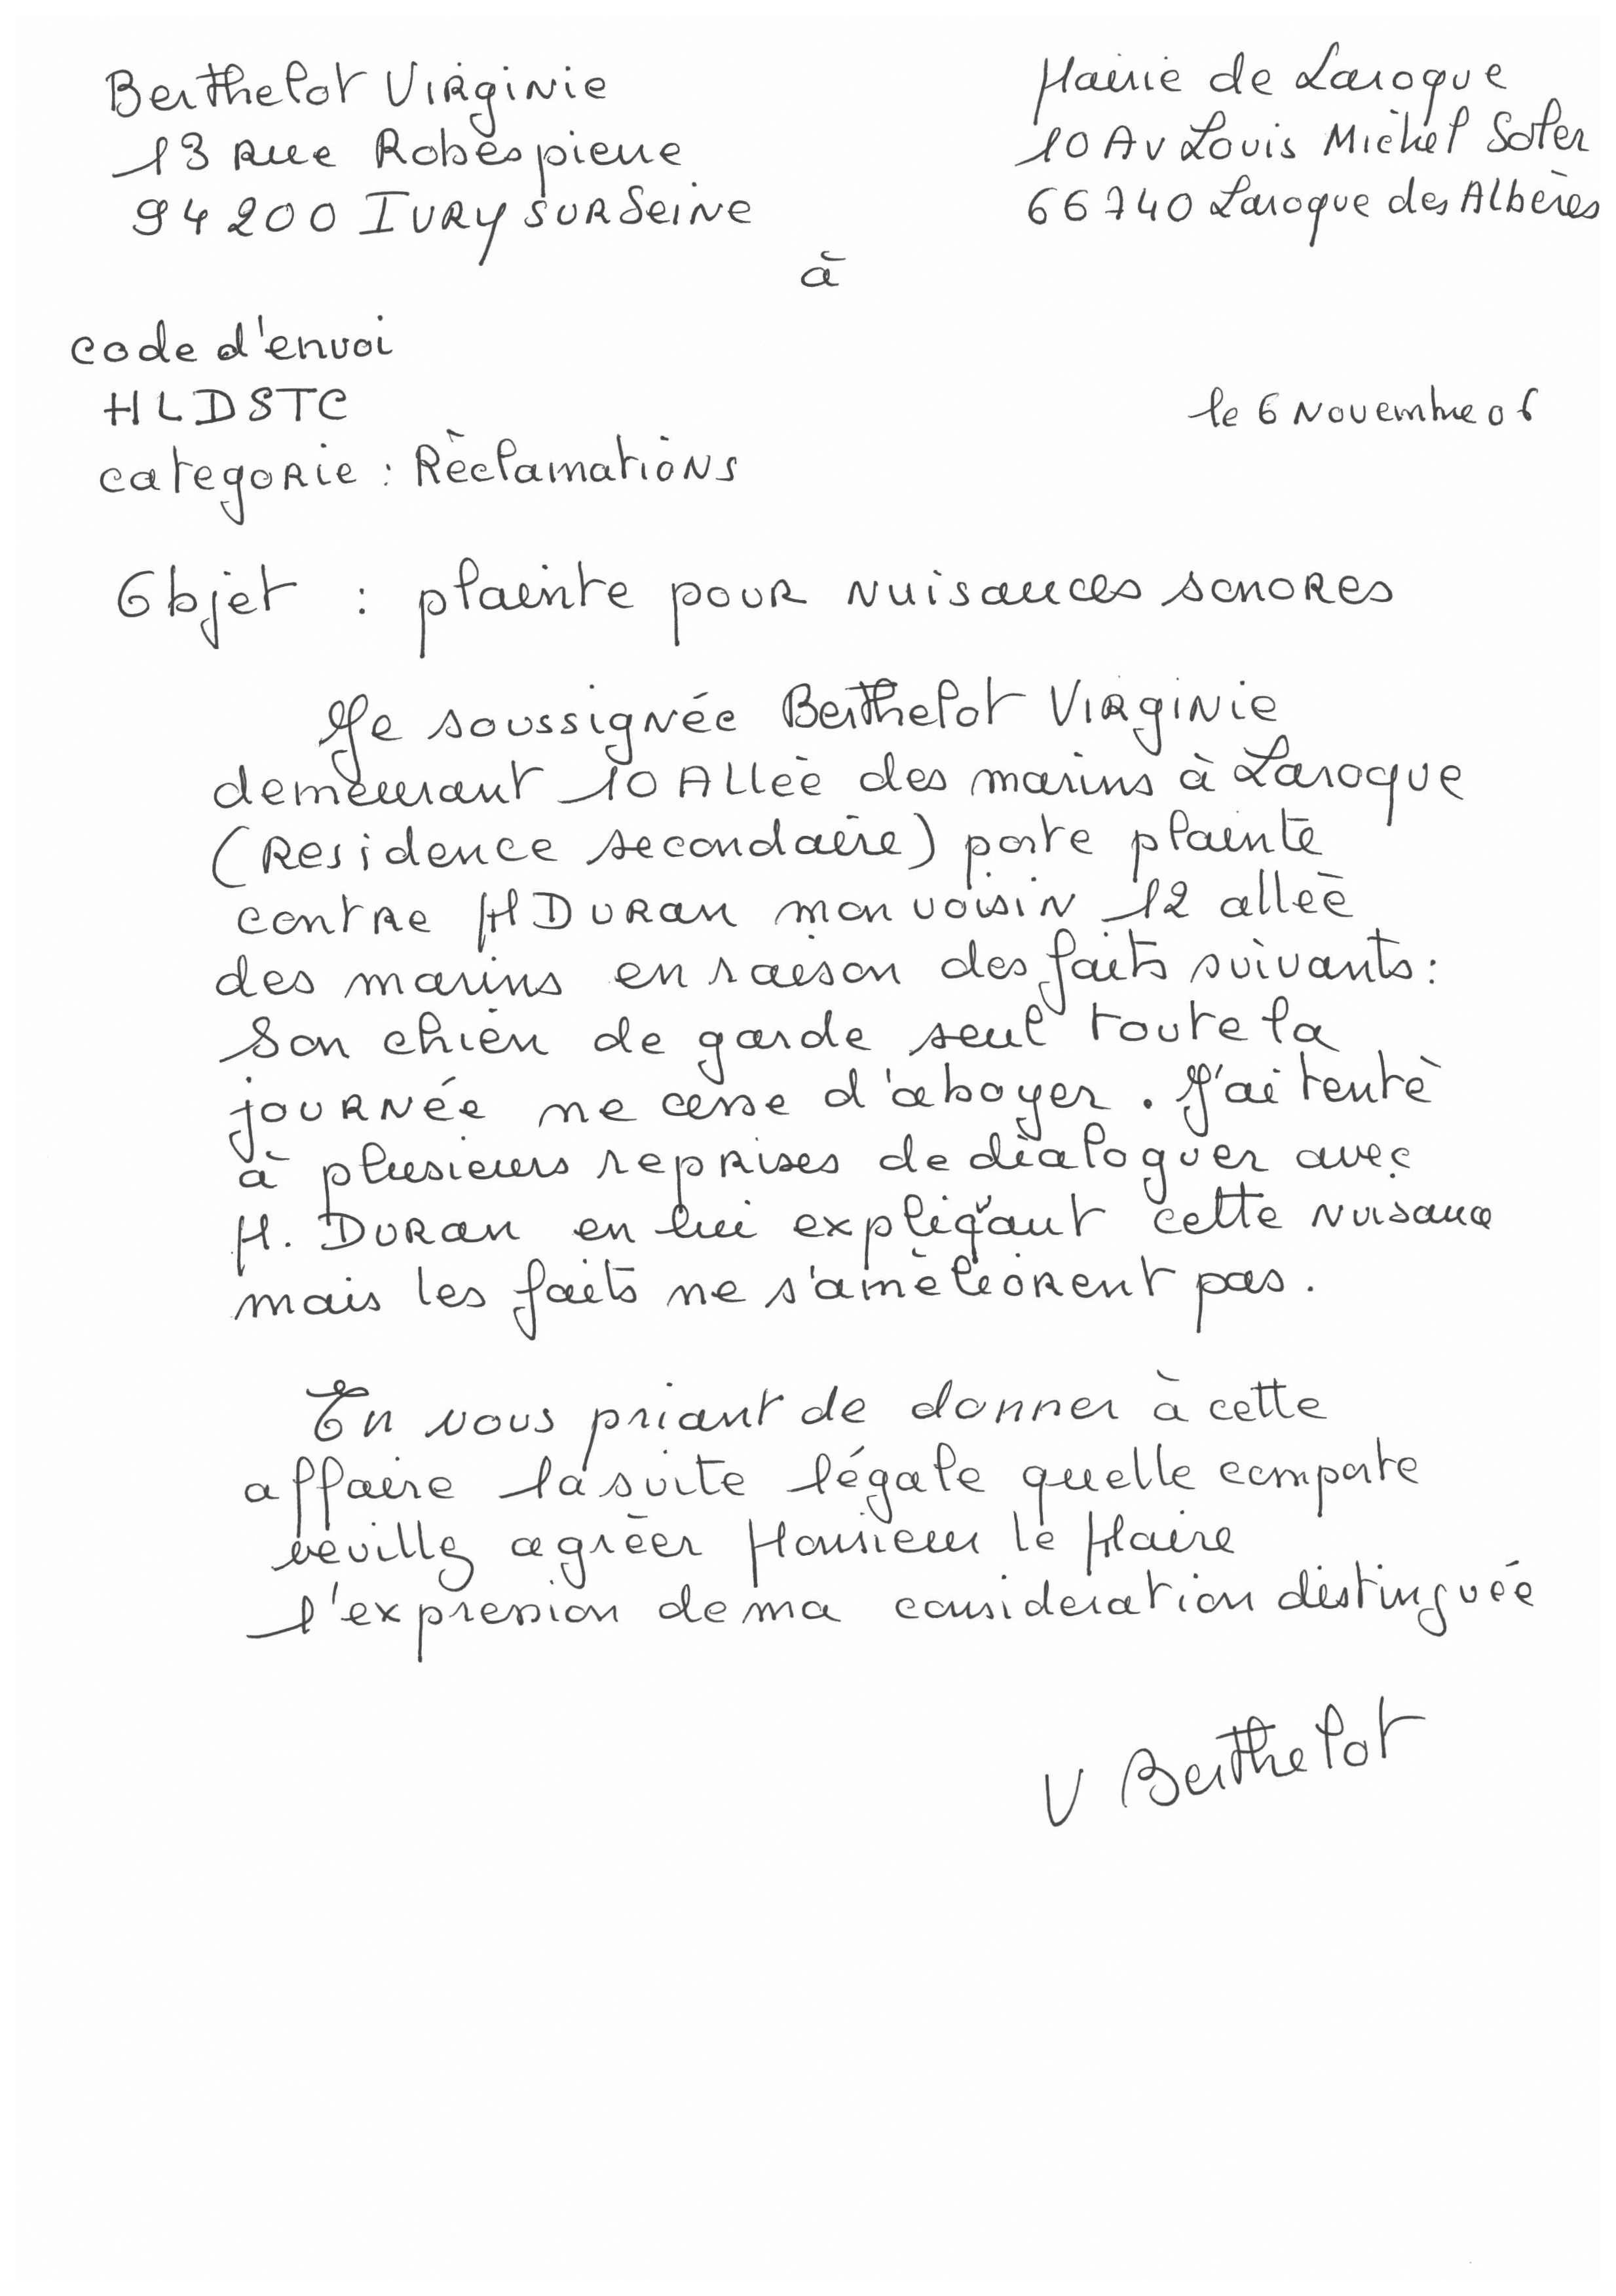 Berthelot Virginie
13 Rue Robespierre
94200 IVRY SUR Seine
Mairie de Laroque
10 Av Louis Michel Soler
66740 Laroque des Albères
à
code d'envoi
HLDSTC
le 6 Novembre 06
categorie : Réclamations
Objet : plainte pour nuisances sonores
Je soussignée Berthelot Virginie
demeurant 10 Allée des marins à Laroque
(Residence secondaire) porte plainte
contre M Duran mon voisin 12 allée
des marins en raison des faits suivants :
Son chien de garde seul toute la
journée ne cesse d'aboyer. J'ai tenté
à plusieurs reprises de dialoguer avec
M. Duran en lui expliqant cette nuisance
mais les faits ne s'améliorent pas.
En vous priant de donner à cette
affaire la suite légale quelle comporte
veuillez agréer Monsieur le Maire
l'expression de ma consideration distinguée
V Berthelot